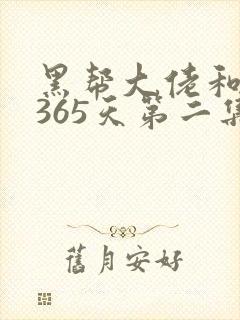 黑帮大佬和
365天第二集
舊月安好